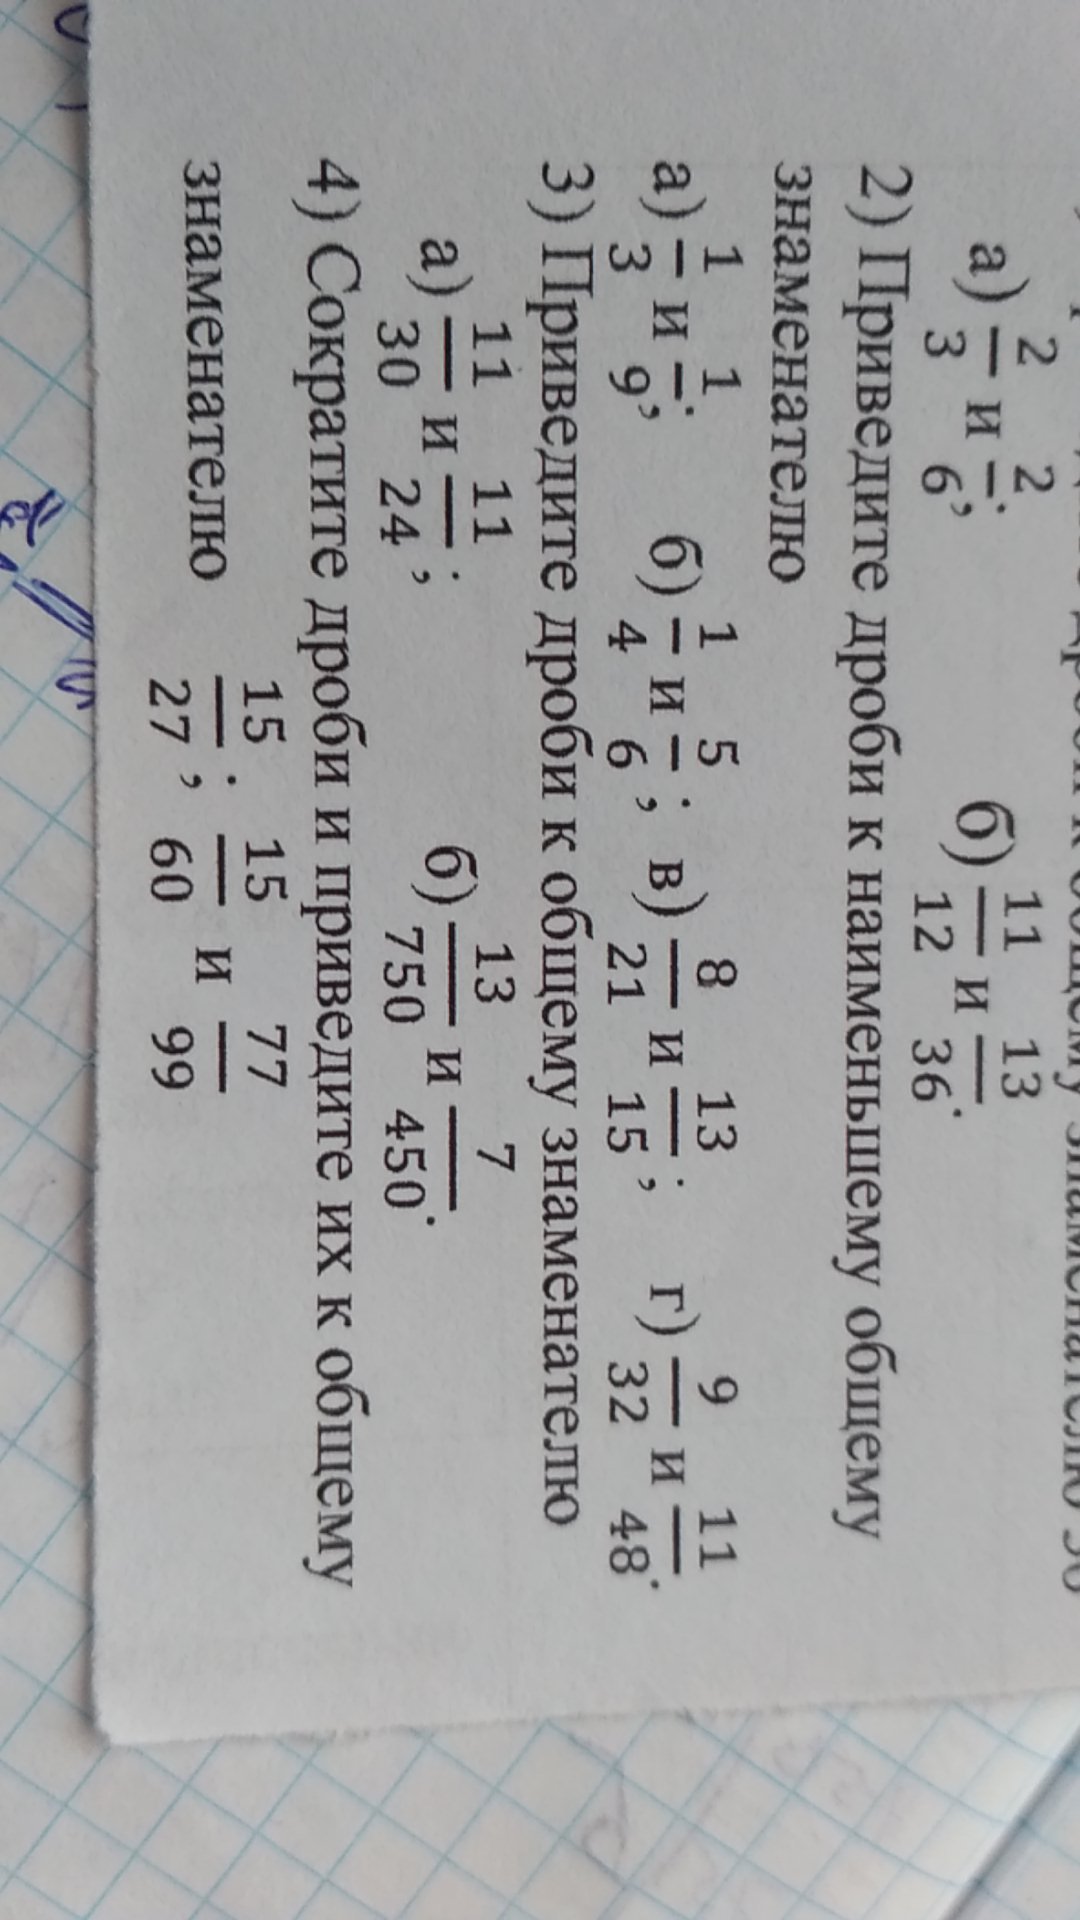 дроби к общему знаменателю 36
а) 2/3 и 2/6; б) 11/12 и 13/36.
2) Приведите дроби к наименьшему общему
знаменателю
а) 1/3 и 1/9; б) 1/4 и 5/6; в) 8/21 и 13/15; г) 9/32 и 11/48.
3) Приведите дроби к общему знаменателю
а) 11/30 и 11/24; б) 13/750 и 7/450.
4) Сократите дроби и приведите их к общему
знаменателю 15/27; 15/60 и 77/99